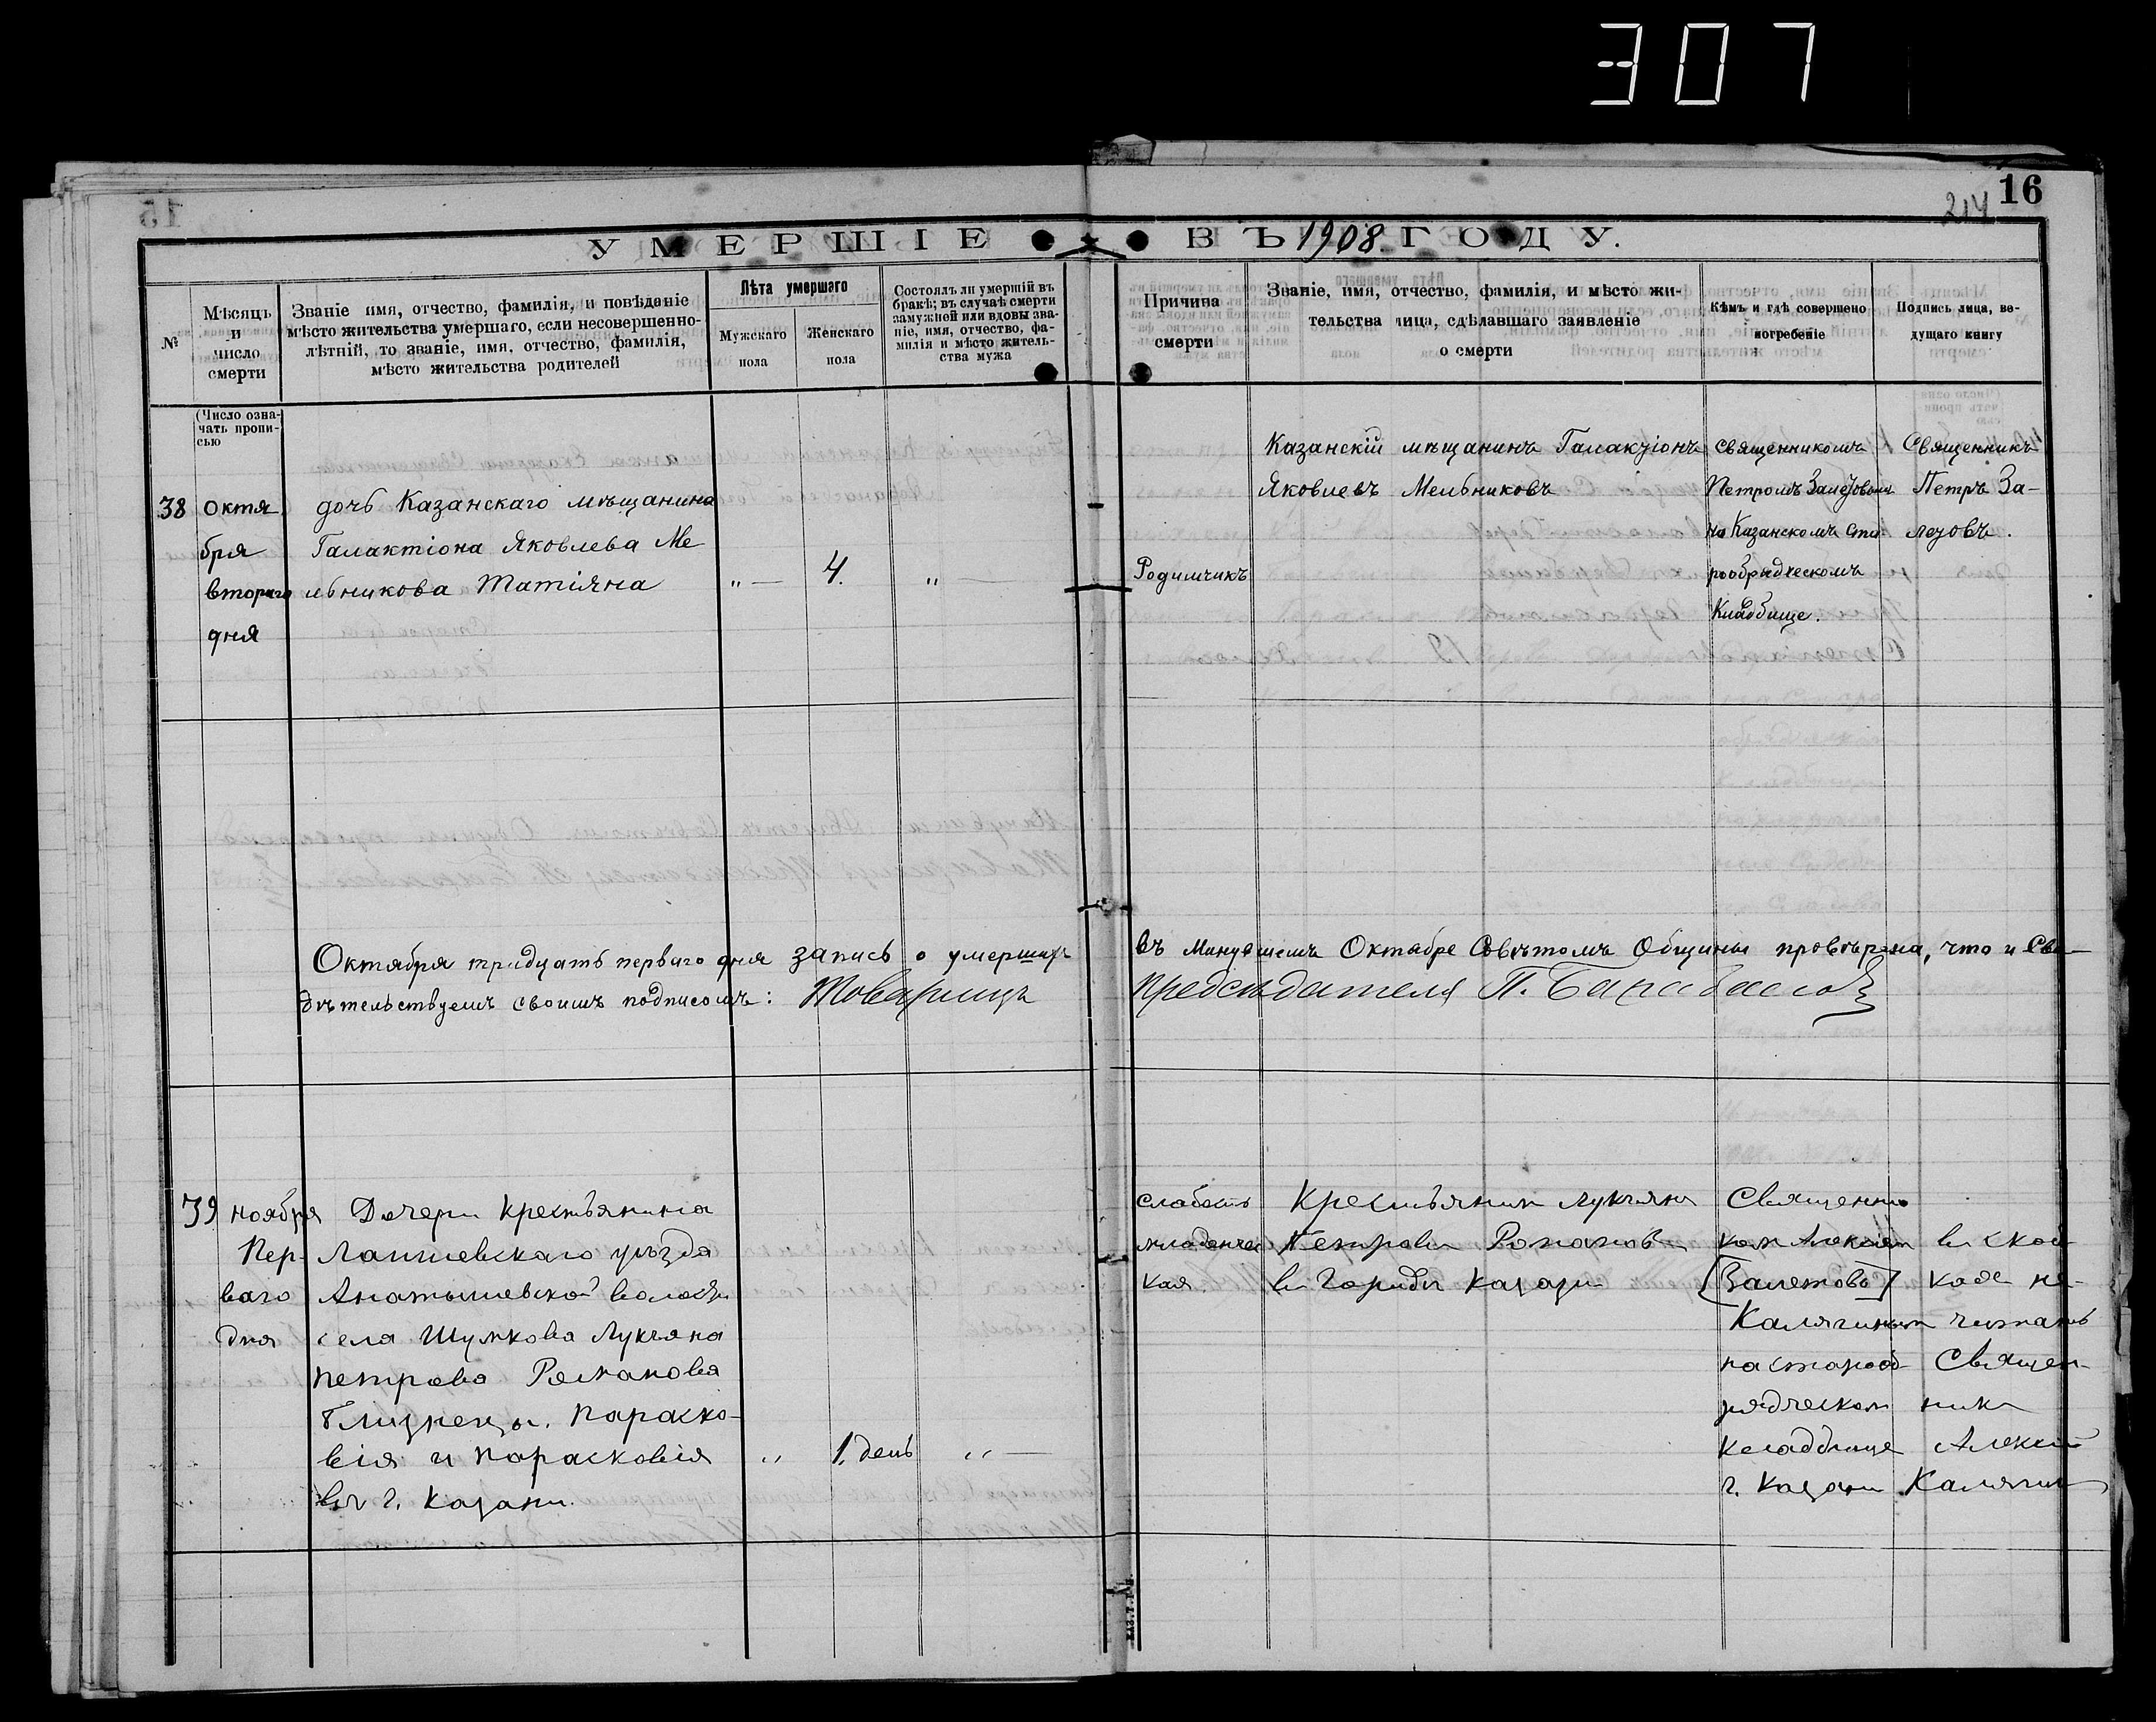 307
16
214
УМЕРШІЕ ВЪ 1908 ГОДУ.
№
Мѣсяцъ
и
число
смерти
Званіе имя, отчество, фамилія, и повѣданіе
мѣсто жительства умершаго, если несовершенно-
лѣтній, то званіе, имя, отчество, фамилія,
мѣсто жительства родителей
Лѣта умершаго
Мужскаго
пола
Женскаго
пола
Состоялъ ли умершій въ
бракѣ; въ случаѣ смерти
замужней или вдовы зва-
ніе, имя, отчество, фа-
милія и мѣсто житель-
ства мужа
Причина
смерти
Званіе, имя, отчество, фамилія, и мѣсто жи-
тельства лица, сдѣлавшаго заявленіе
о смерти
Кѣмъ и гдѣ совершено
погребеніе
Подпись лица, ве-
дущаго книгу
(Число озна-
чать пропи-
сью
38
октя
бря
втораго
дня
дочь Казанскаго мѣщанина
Галактіона Яковлева Ме
льникова Татіяна
„ —
4.
„ —
Родимчикъ
Казанскій мѣщанинъ Галактіонъ
Яковлевъ Мельниковъ
священникомъ
Петромъ Залетовымъ
на Казанскомъ Ста-
рообрядческомъ
Кладбище.
Священникъ
Петръ За-
летовъ.
Октября тридцать перваго дня запись о умершихъ въ минувшемъ Октябре Совѣтомъ Общины провѣрена, что и сви-
дѣтельствуемъ своимъ подписомъ: Товарищъ Предсѣдателя П.
39
ноября
Пер-
ваго
дня
Дочери Крестьянина
Лаишевскаго уѣзда
Анатышевской волости
села Шумкова Лукьяна
Петрова Романова
близнецы. Параско-
вія и Парасковія
въ г. Казани.
„
1. день
„ —
слабость
младенчес
кая.
Крестьянин Лукьян
Петровъ Романовъ
въ Городѣ Казани
Священни
ком Алексѣем
[Залетовъ]
Калягиным
на старооб
рядческом
кладбище
г. Казани
въ скоб
кахъ не
читать
Священ-
никъ
Алексѣй
Калягин